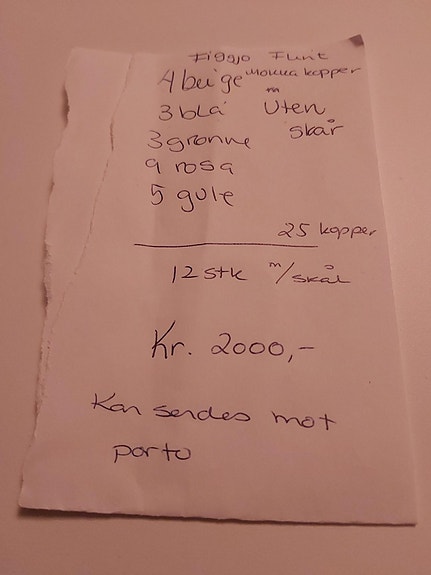 Figgjo Flint
4 beige mokka kopper
3 blå m uten
3 grønne skår
9 rosa
5 gule
25 kopper
12 stk m/skål
Kr. 2000,-
Kan sendes mot
porto